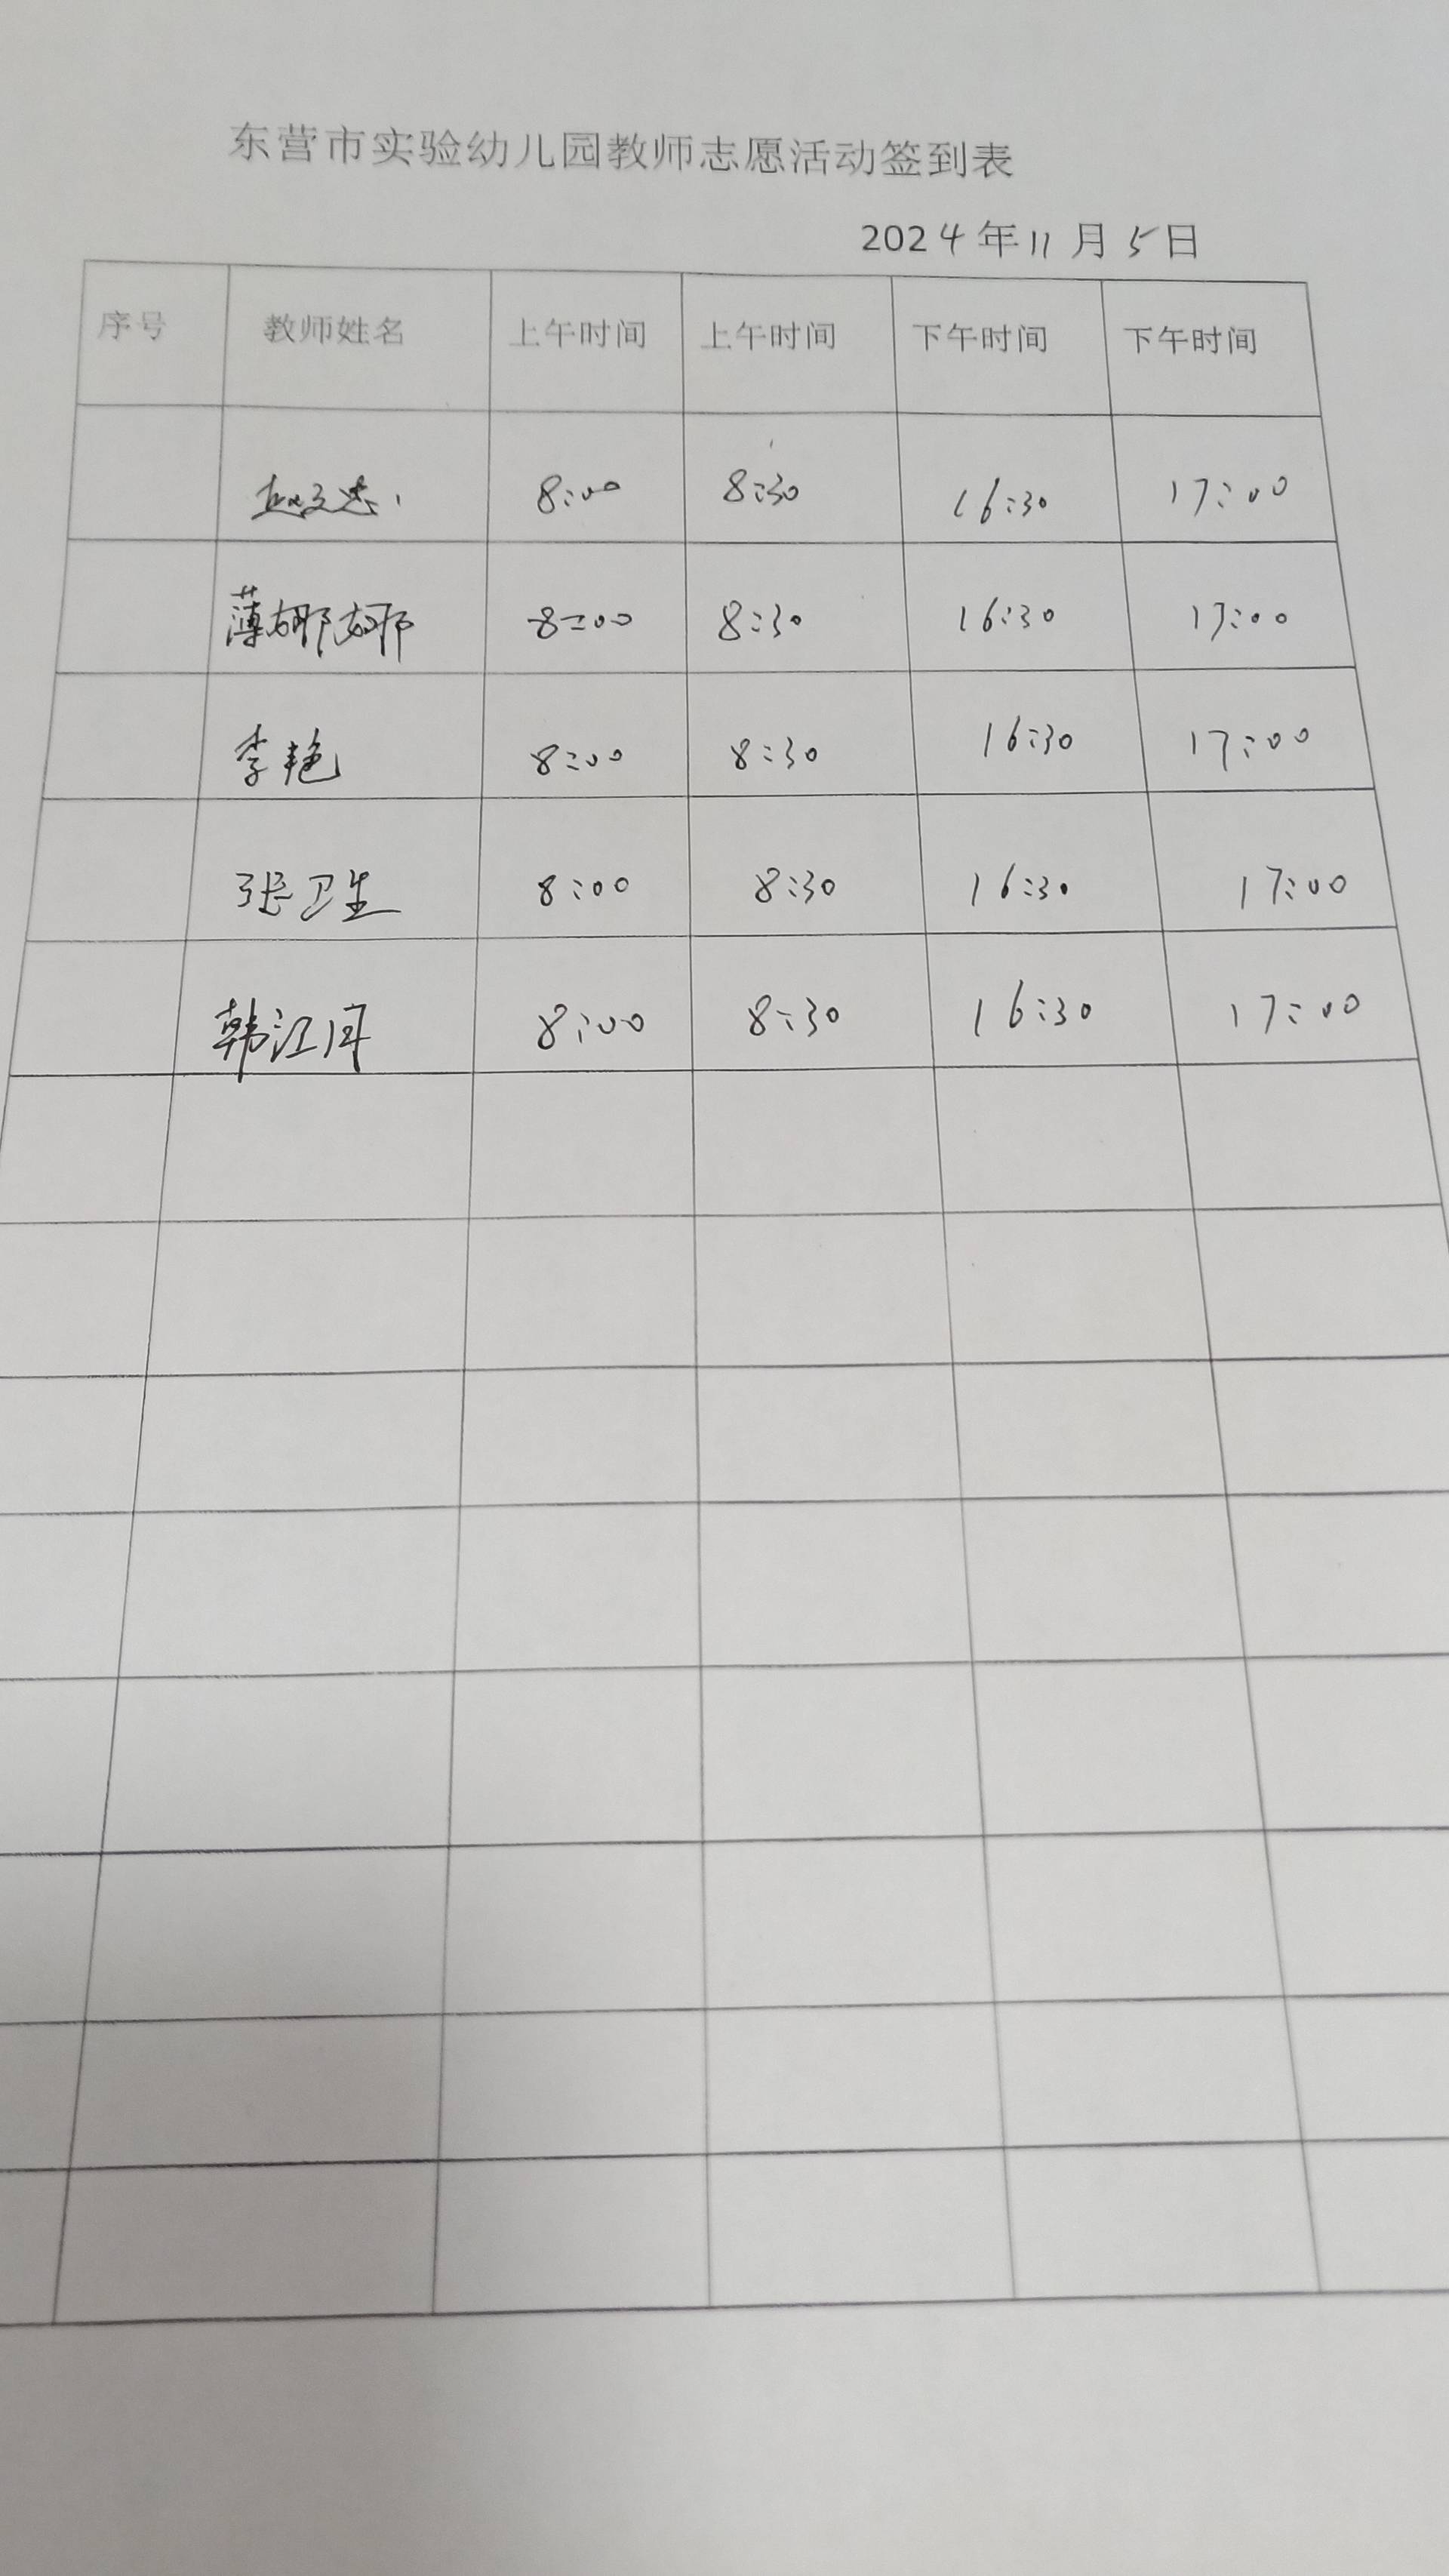 东营市实验幼儿园教师志愿活动签到表
2024年11月5日
序号 教师姓名 上午时间 上午时间 下午时间 下午时间
赵 8:00 8:30 16:30 17:00
薄娜娜 8:00 8:30 16:30 17:00
李艳 8:00 8:30 16:30 17:00
张卫生 8:00 8:30 16:30 17:00
韩江 8:00 8:30 16:30 17:00